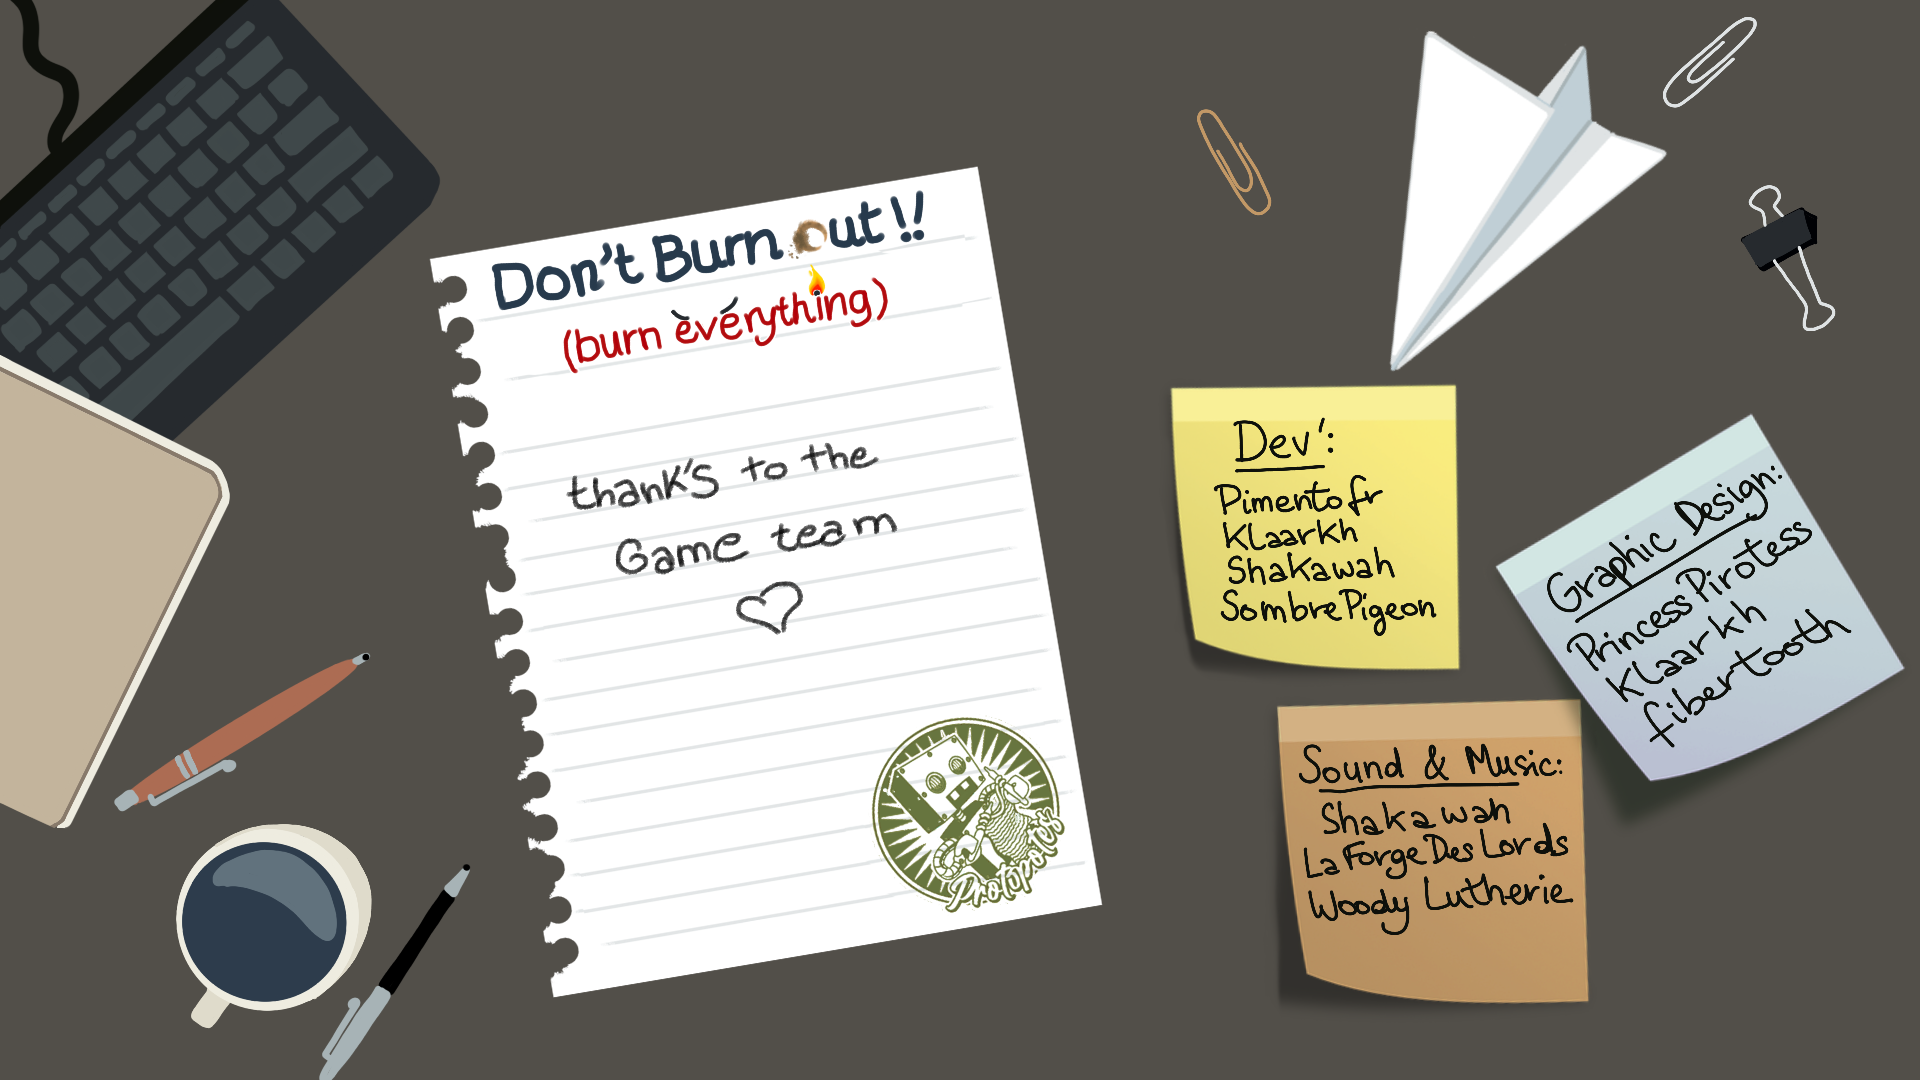 Don't Burn out!!
(burn èvérything)
thank's to the
Game team
Protopotes
Dev':
Pimentofr
Klaarkh
Shakawah
SombrePigeon
Graphic Design:
PrincessPirotess
Klaarkh
fibertooth
Sound & Music:
Shakawah
LaForgeDesLords
Woody Lutherie